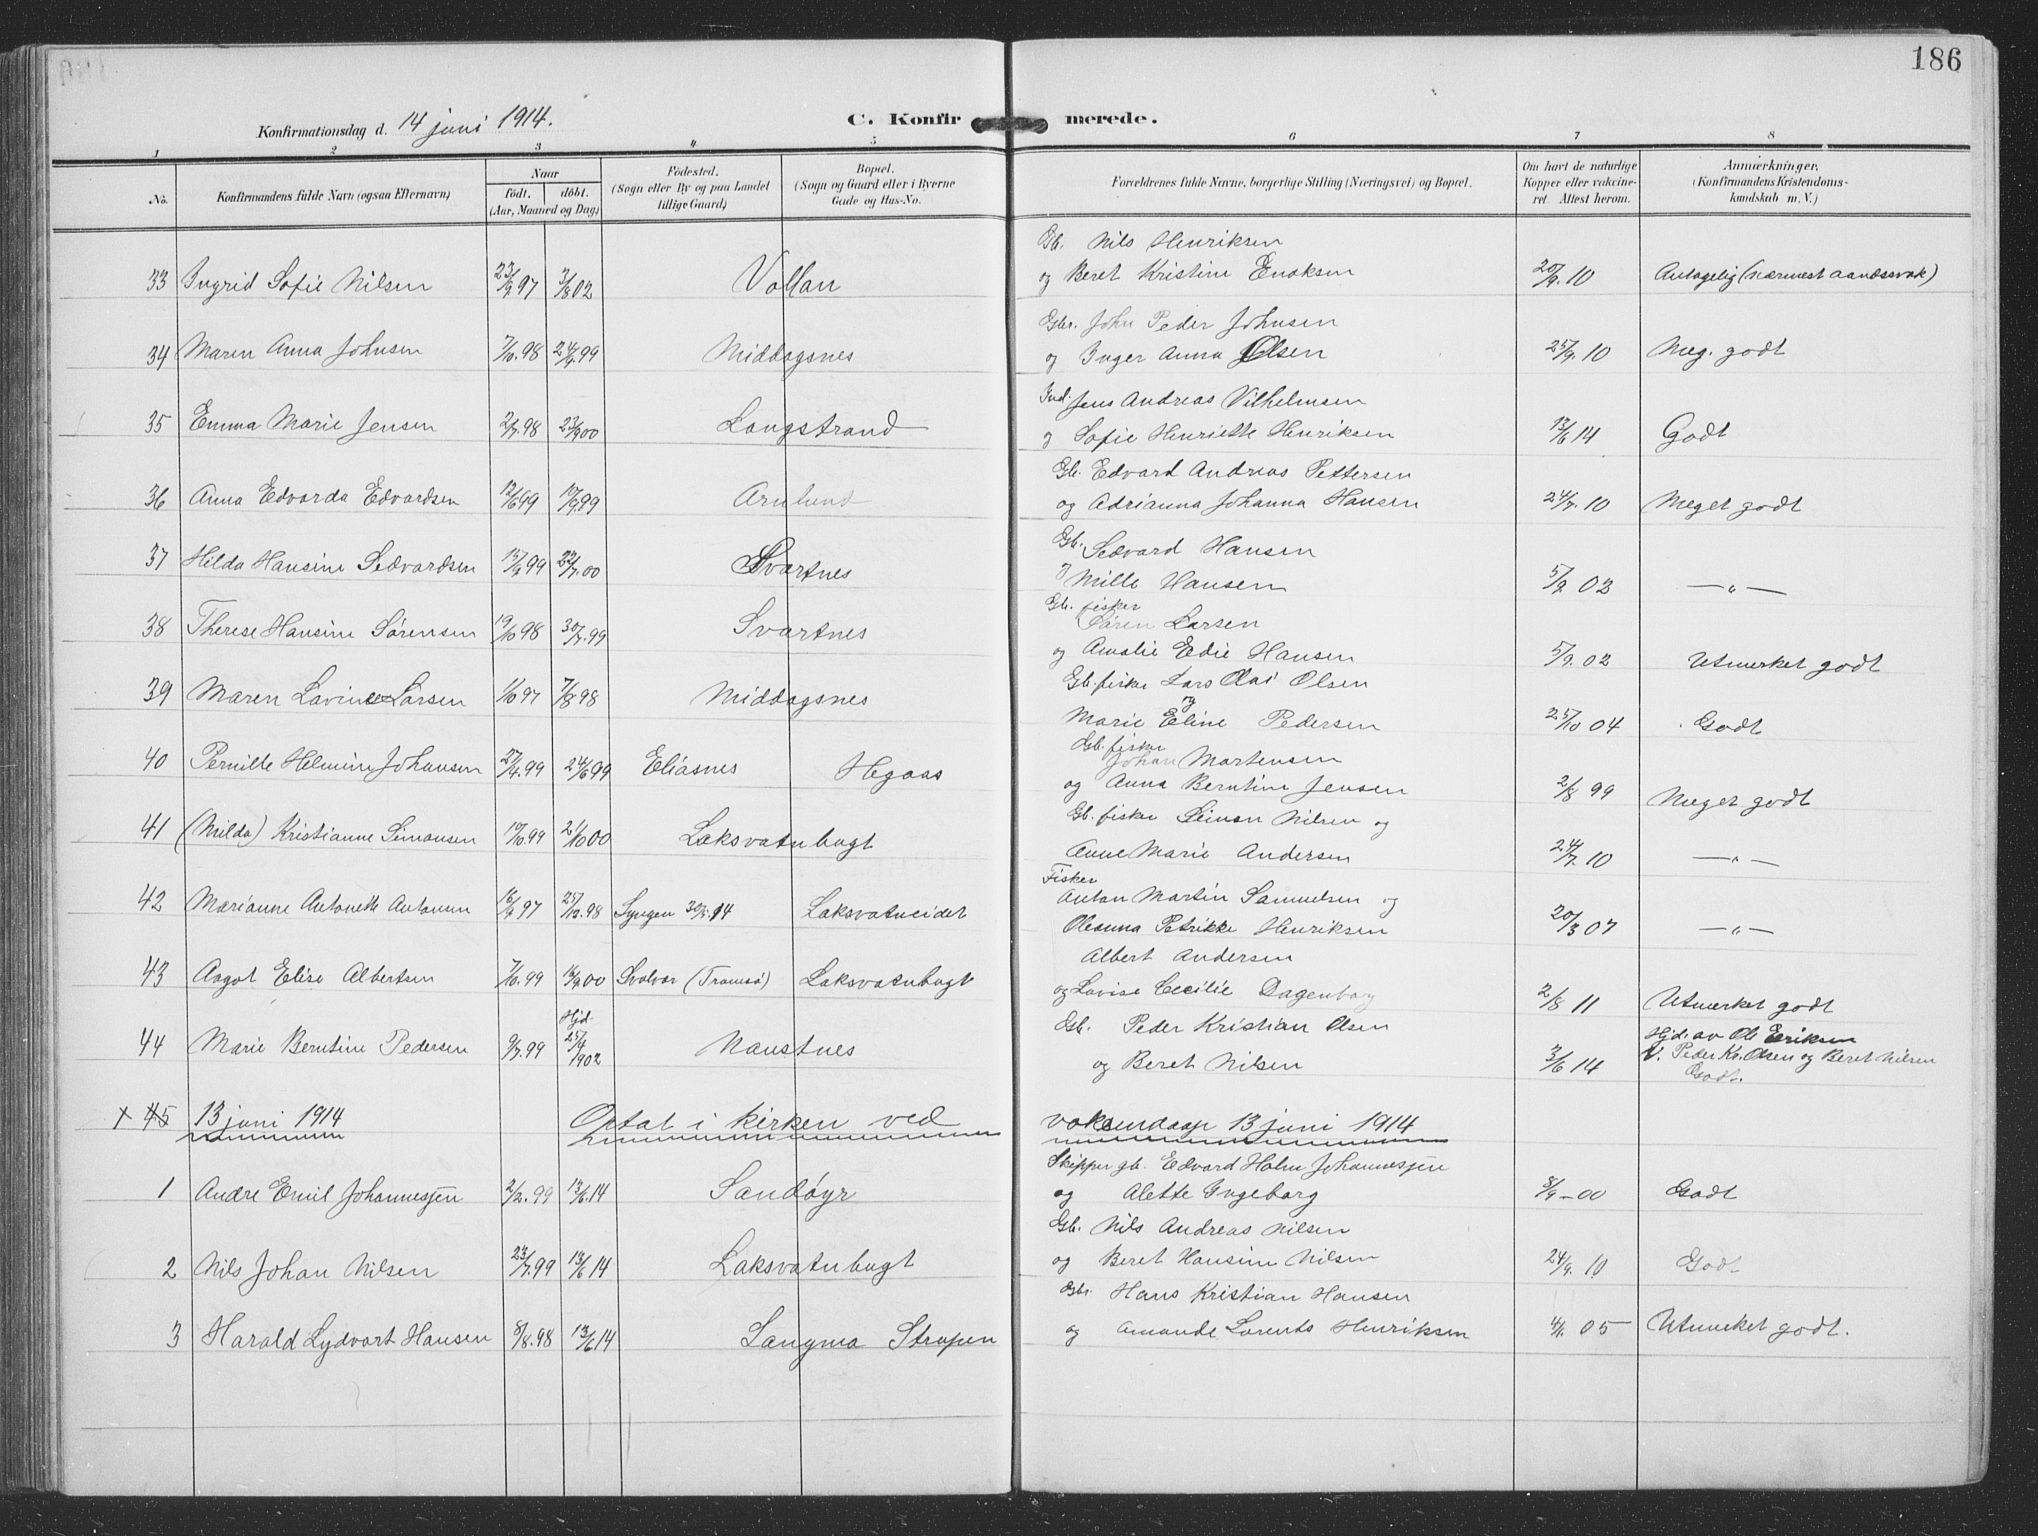 186
Konfirmationsdag d. 14 juni 1914.
C. Konfirmerede.
1 2 3 4 5 6 7 8
No.
Konfirmandens fulde Navn (ogsaa Efternavn)
Naar
født. døbt.
(Aar, Maaned og Dag)
Fødested.
(Sogn eller By og paa Landet
tillige Gaard)
Bopæl.
(Sogn og Gaard eller i Byerne
Gade og Hus-No.
Forældrenes fulde Navne, borgerlige Stilling (Næringsvei) og Bopæl.
Om havt de naturlige
Kopper eller vakcine-
ret. Attest herom.
Anmærkninger,
(Konfirmandens Kristendoms-
kundskab m. V.)
Gb. Nils Henriksen
33 Ingrid Sofie Nilsen 23/9 97 3/8 02 Vollan og Beret Kristine Enoksen 20/9. 10 Antagelig (nærmest aandssvak)
Gbr. John Peder Johnsen
34 Maren Anna Johnsen 7/10. 98 24/9 99 Middagsnes og Inger Anna Olsen 25/9. 10 Meg. godt
Ind. Jens Andreas Vilhelmsen
35 Emma Marie Jensen 2/7. 98 23/9 00 Langstrand og Sofie Henriette Henriksen 13/6 14 Godt
Gb. Edvard Andreas Pettersen
36 Anna Edvarda Edvardsen 12/6 99 17/9. 99 Arnlund og Adrianna Johanna Hansen 24/7. 10 Meget godt
Gb. Sedvard Hansen
37 Hilda Hansine Sedvardsen 15/9 99 22/7. 00 Svartnes og Mille Hansen 5/9 02 — „ —
Gb. fisker
Søren Larsen
38 Therese Hansine Sørensen 19/10 98 30/7. 99 Svartnes
og Amalie Edie Hansen 5/9. 02 Utmerket godt
Gb. fisker Lars Olai Olsen
39 Maren Lavine Larsen 1/10 97 7/8 98 Middagsnes
og
Marie Eline Pedersen 25/10 04 Godt
Gb. fisker
Johan Martensen
40 Pernille Helmine Johansen 27/4. 99 24/6 99 Eliasnes Hegaas
og Anna Berntine Jensen 2/8 99 Meget godt
Gb. fisker Simon Nilsen og
41 (Milda) Kristianne Simonsen 19/10. 99 21/10 00 Laksvatnbugt
Anne Marie Andersen 24/7. 10 — „ —
Fisker
Anton Martin Samuelsen og
42 Marianne Antonette Antonsen 16/9 97 25/12. 98 Lyngen Laksvatneidet
Oleanna Petrikke Henriksen 20/3 07 — „ —
Albert Andersen
43 Aagot Elise Albertsen 7/10. 99 16/9 00 Svolvær (Tromsø) Laksvatnbugt
og Lovise Cecilie Dagenborg 2/8 11 Utmerket godt
Gb. Peder Kristian Olsen
44 Marie Berntine Pedersen 9/7. 99 Hjd. 25/4 1902 Naustnes
og Beret Nilsen 3/6 14
Hjd. av Ole Eriksen
V. Peder Kr. Olsen og Beret Nilsen
Godt.
+ 45 13 juni 1914 Optat i kirken ved voksendaap 13 juni 1914
Skipper gb. Edvard Holm Johannesjen
1 Andre Emil Johannesjen 2/2. 99 13/6. 14 Sandøyr og Alette Ingeborg 8/9 - 00 Godt
Gb. Nils Andreas Nilsen
2 Nils Johan Nilsen 23/7. 99 13/6 14 Laksvatnbugt og Beret Hansine Nilsen 24/9. 10 Godt
Gbr. Hans Kristian Hansen
3 Harald Lydvart Hansen 8/8. 98 13/6 14 Langma Strupen og Amande Lorents Henriksen 05 Utmerket godt.